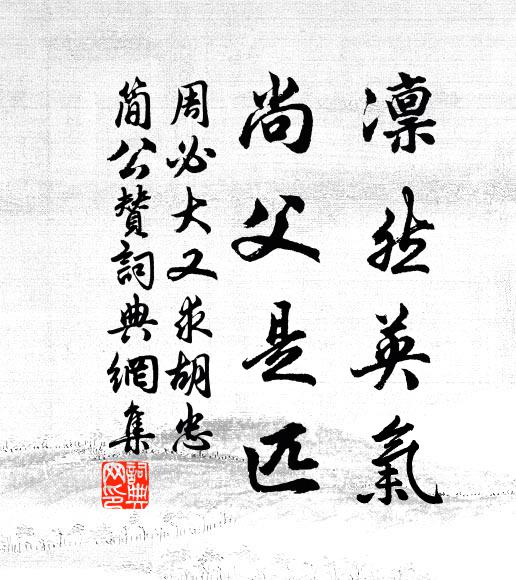 凜然英氣
尚父是匹
周必大又求胡忠
簡公贊詞典網集
詞典網印